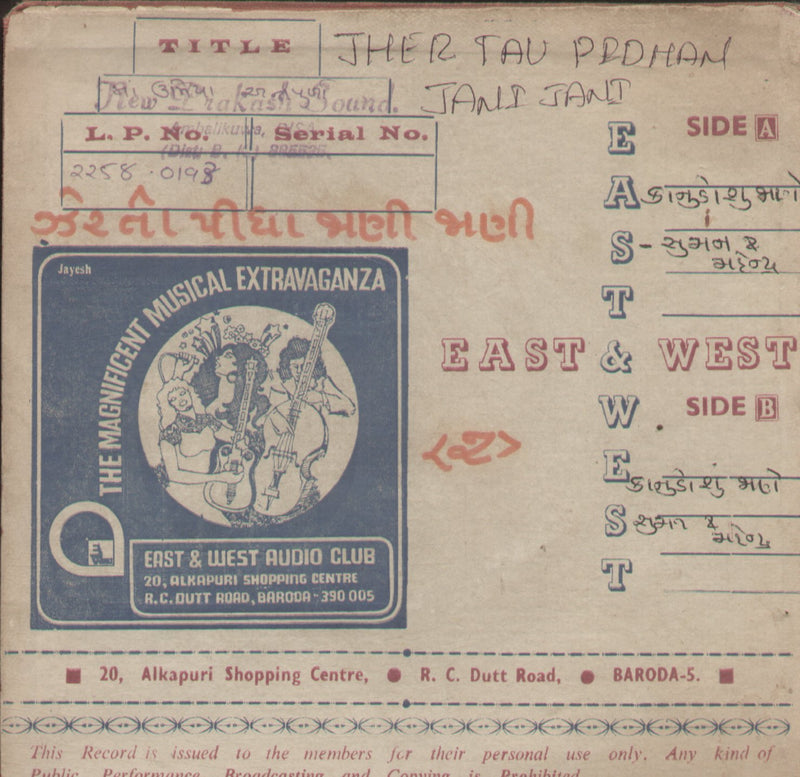 TITLE
JHER TAU PEDHAN
JANI JANI
New Prakash Sound.
Ambalikuwa,
L. P. No. Serial No.
2258·0193
ઝેર તો પીધા જાણી જાણી
EAST & WEST
EAST & WEST
SIDE A
કાનુડો શું જાણે
- સુમન ક
મહેન્દ્ર
SIDE B
કાનુડો શું જાણે
સુમન ક
મહેન્દ્ર
<૨>
Jayesh
THE MAGNIFICENT MUSICAL EXTRAVAGANZA
EAST & WEST AUDIO CLUB
20, ALKAPURI SHOPPING CENTRE
R.C. DUTT ROAD, BARODA - 390 005
20, Alkapuri Shopping Centre, R. C. Dutt Road, BARODA-5.
This Record is issued to the members for their personal use only. Any kind of
Public Performance Broadcasting and Copying is Prohibited